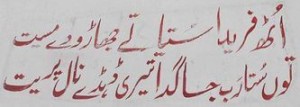 اُٹھ فریدا ستیا تے جھاڑو دے مسیت
توں ستا رب جاگدا تیری ڈہڈے نال پریت